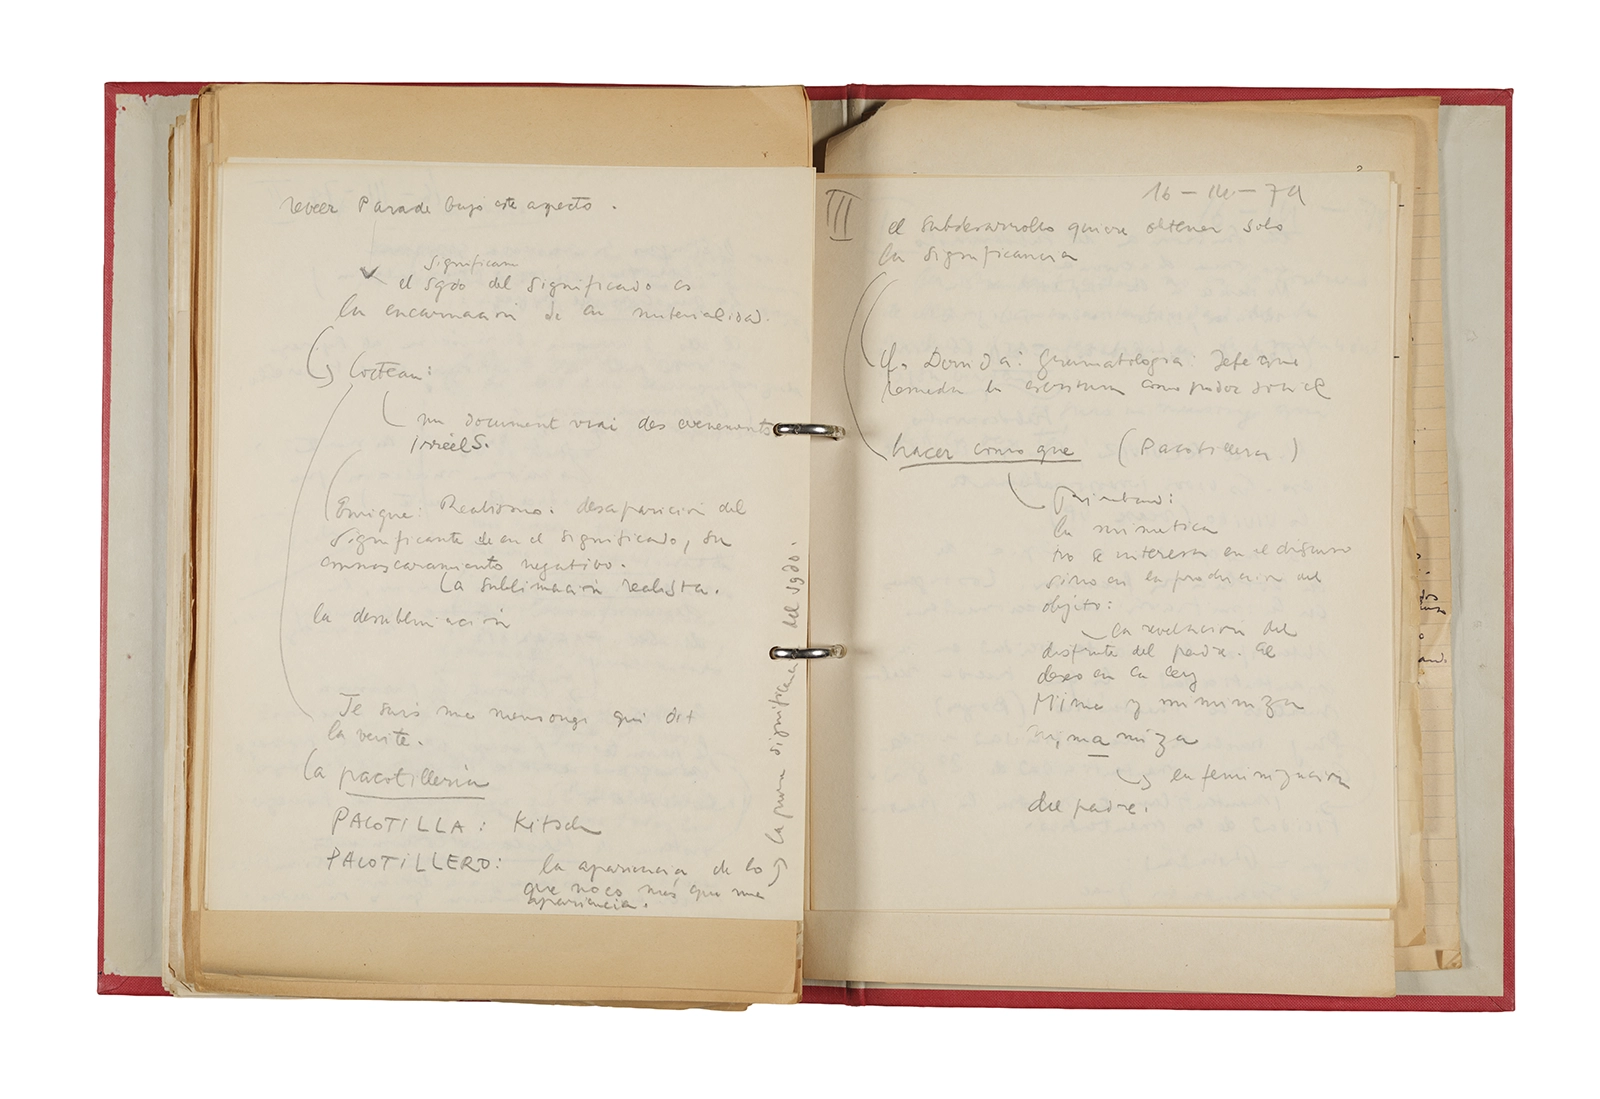 rever Parade bajo este aspecto.
significan
el sgdo del significado es
la encarnación de su materialidad.
Cocteau:
un document vrai des evenements
irréels.
Enrique: Realismo: desaparición del
significante en el significado, su
enmascaramiento negativo.
La sublimación realista.
la desublimación
Je suis un mensonge qui dit
la verité.
la pacotillería
PACOTILLA: Kitsch
PACOTILLERO: la apariencia de lo
que no es más que una
apariencia.
la pura significancia del sgdo.
III
el subdesarrollo quiere obtener solo
la significancia
cf. Derrida: Gramatología: Jefe que
remeda la escritura como poder sin el
hacer como que (Pacotillera)
la mimetica
no se interesa en el discurso
sino en la producción del
objeto:
la revelación del
disfrute del padre. El
deseo en la ley
Mima y minimiza
mimamiza
la feminización
del padre.